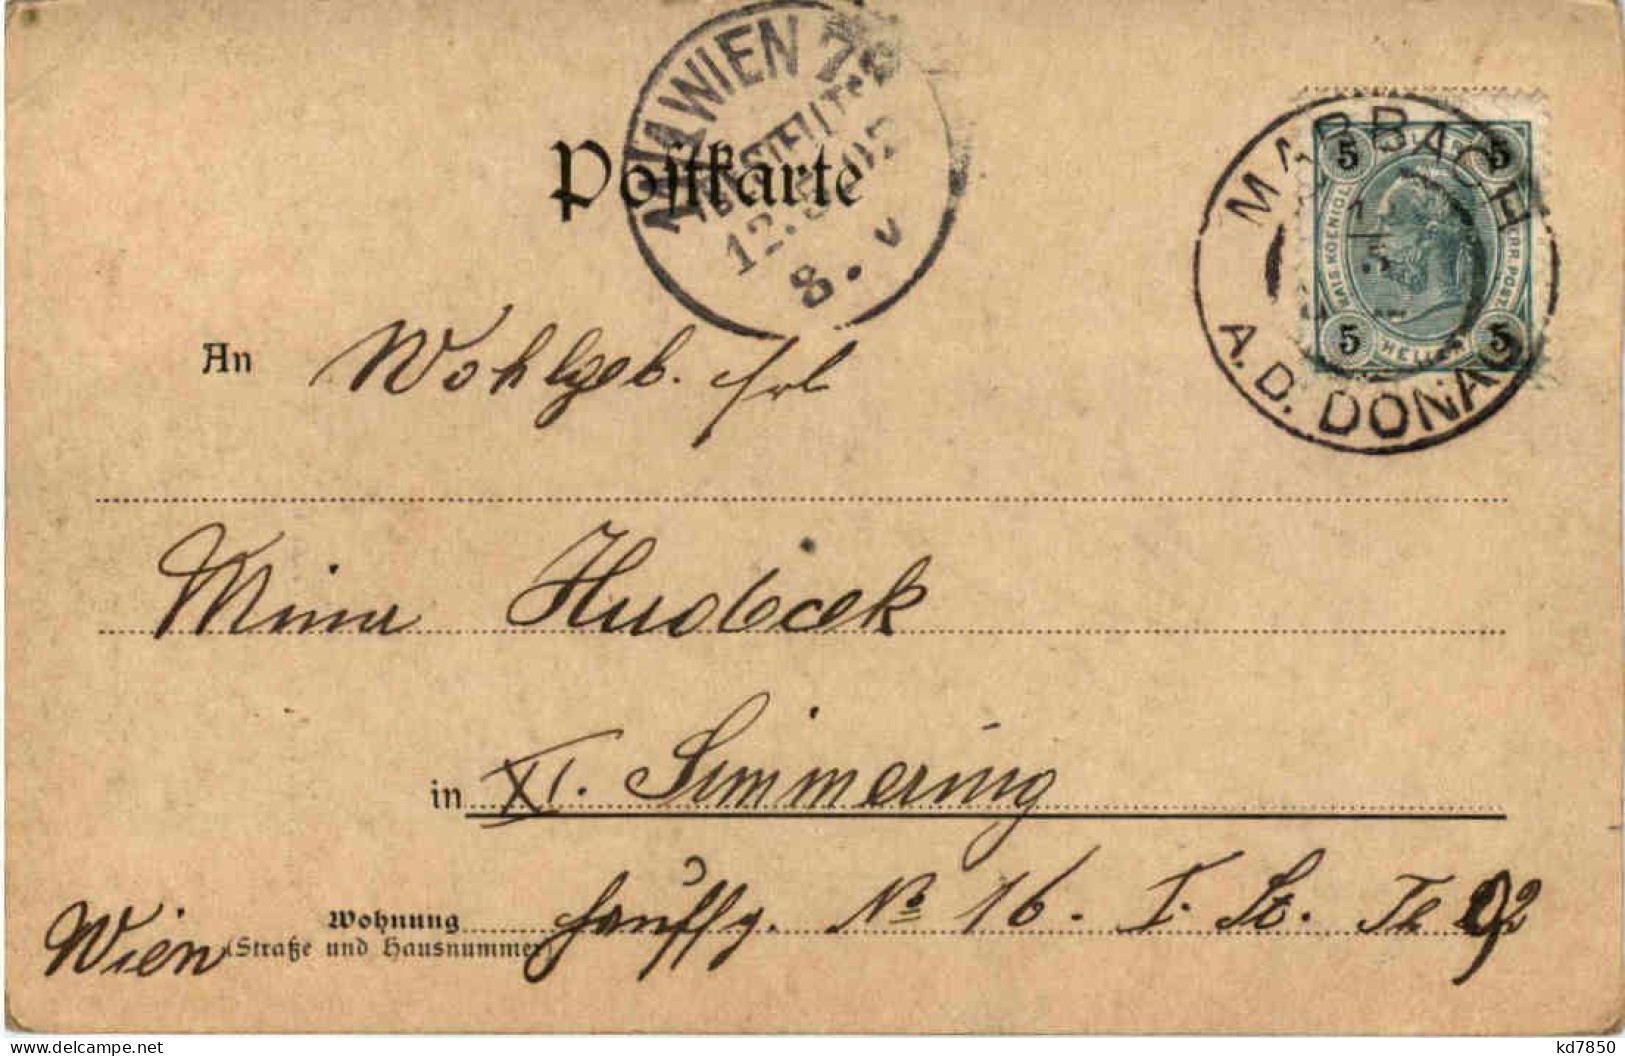 WIEN 7
BESTELLT
12.5.02
8. V
Postkarte
MARBACH
A.D. DONAU
5 5
KAIS. KOENIGL. HERR. POST.
5 HELLER 5
An Wohlgeb. Frl
Mina Hudecek
in XI. Simmering
Wohnung Hauffg. No 16. I. St. Th
Wien (Straße und Hausnummer)
delcampe.net
kd7850